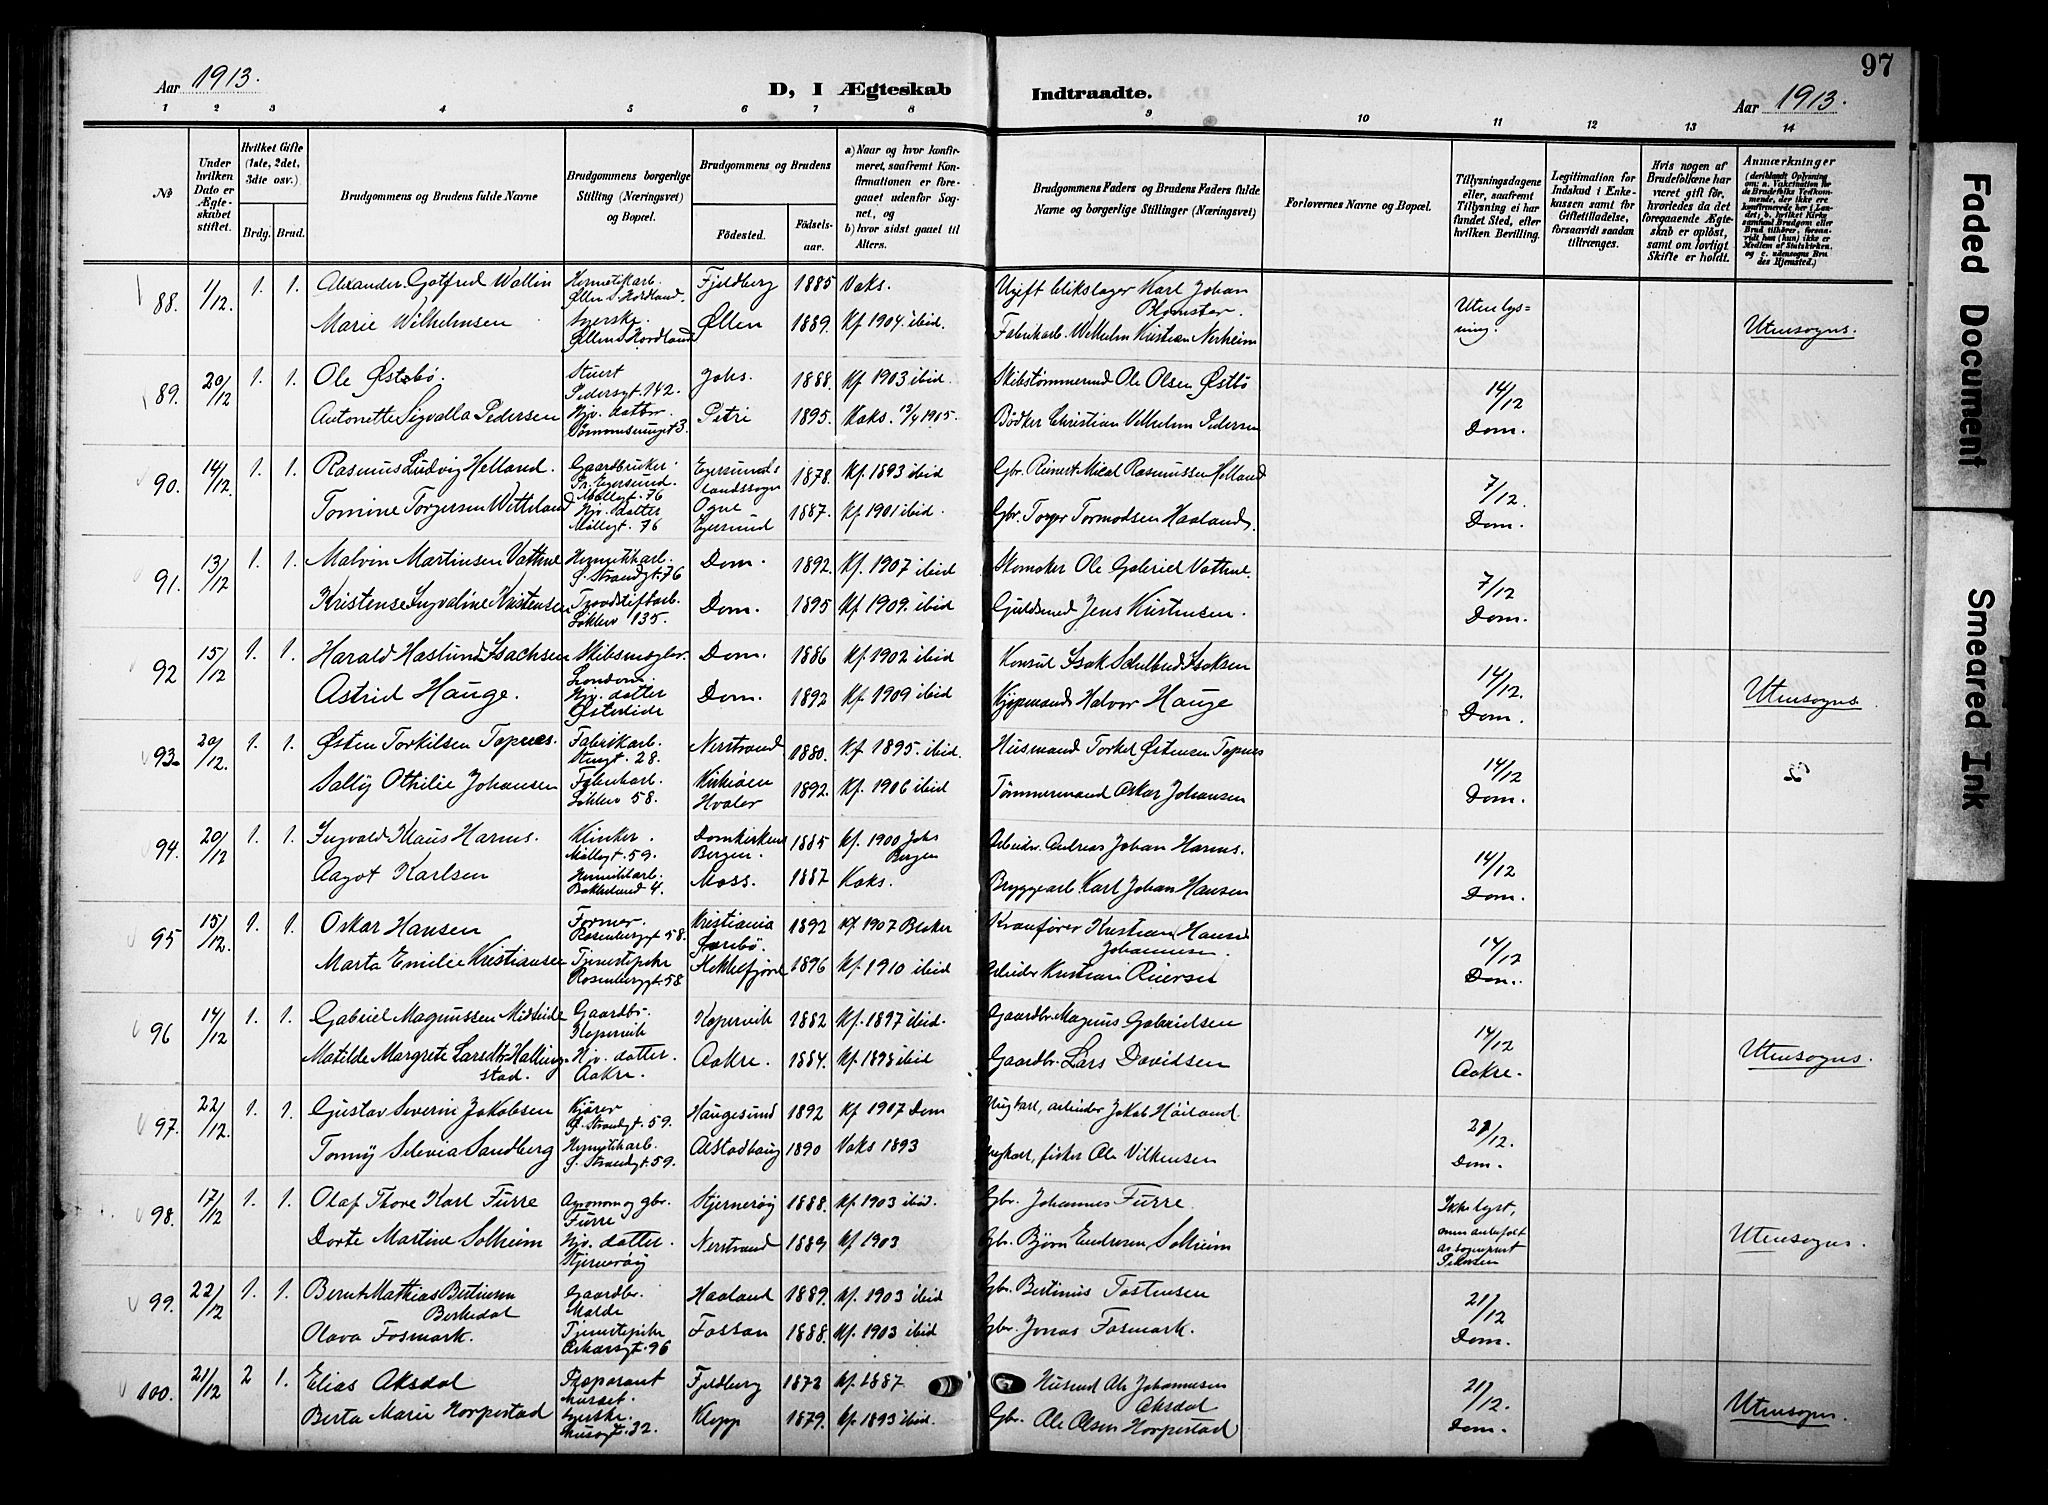 97
Aar 1913.
D, I Ægteskab
Indtraadte.
Aar 1913.
1 2 3 4 5 6 7 8 9 10 11 12 13 14
No
Under hvilken Dato er Ægteskabet stiftet.
Hvilket Gifte (1ste, 2det, 3die osv.)
Brdg. Brud.
Brudgommens og Brudens fulde Navne
Brudgommens borgerlige Stilling (Næringsvei) og Bopæl.
Brudgommens og Brudens
Fødested.
Fødselsaar.
a) Naar og hvor konfirmeret, saafremt Konfirmationen er foregaaet udenfor Sognet, og
b) hvor sidst gaaet til Alters.
Brudgommens Faders og Brudens Faders fulde Navne og borgerlige Stillinger (Næringsvei)
Forlovernes Navne og Bopæl.
Tillysningsdagene eller, saafremt Tillysning ei har fundet Sted, efter hvilken Bevilling.
Legitimation for Indskud i Enkekassen samt for Giftetilladelse, forsaavidt saadan tiltrænges.
Hvis nogen af Brudefolkene har været gift før, hvorledes da det foregaaende Ægteskab er opløst, samt om lovligt Skifte er holdt.
Anmærkninger
88. 1/12. 1. 1. Alexander Gotfred Wallin Hermetikarb. Fjeldberg 1885 Vaks. Ugift blikslager Karl Johan Blomster. Uten lysning.
Marie Wilhelmsen Syerske Ølen 1889. Kf. 1904. ibid. Fabrikarb. Wilhelm Kristian Nerheim Utensogns.
89. 20/12 1. 1. Ole Østebø. Stuert Pedersgt. 142. Johs. 1888. Kf. 1903 ibid. Skibstømmermd Ole Olsen Østbø 14/12 Dom.
Antonette Sigvalla Pedersen Hjv. datter Petri 1895. Vaks. 1905. Bødker Christian Vilhelm Pedersen
90. 14/12. 1. 1. Rasmus Ludvig Helland. Gaardbruker. Egersunds landssogn 1878. Kf. 1893 ibid Gbr. Reinert Mical Rasmussen Helland 7/12. Dom.
Tomine Torgersen Hjv. datter Møllegt. 76 Ogne Egersund 1887. Kf. 1901 ibid. Gbr. Torger Tormodsen Haaland.
91. 13/12 1. 1. Malvin Martinsen Vatne Hermetikkarb. Ø. Strandgt. 76 Dom. 1892. Kf. 1907 ibid Skomaker Ole Gabriel Vatne. 7/12 Dom.
Kristense Ingvaline Kristensen Løkkev 135. Dom. 1895 Kf. 1909. ibid Guldsmed Jens Kristensen.
92 15/12 1. 1. Harald Haslund Isachsen Skibsmægler. London. Dom. 1886 Kf. 1902 ibid Konsul Isak Isaksen 14/12. Dom.
Astrid Hauge. Hjv. datter Østerlide Dom. 1892 Kf. 1909 ibid Kjøpmand Halvor Hauge Utensogns
93. 20/12. 1. 1. Østen Torkilsen Topnes. Fabrikarb. Stingt. 28. Nerstrand 1880. Kf. 1895. ibid. Husmand Torkel Østensen Topnes 14/12 Dom.
Sally Othilie Johansen Fabrikarb. Løkkev 58. Kirkeøen Hvaler 1892. Kf. 1906 ibid Tømmermand Oskar Johansen
94. 20/12 1. 1. Ingvald Klaus Harms. Klinker. Møllegt. 59. Domkirken Bergen. 1885 Kf. 1900 Johs Bergen Arbeider. Andreas Johan Harms. 14/12 Dom.
Aagot Karlsen Hermetikarb. Bakkeland 4. Moss. 1887 Vaks. Bryggearb. Karl Johan Hansen
95 15/12. 1. 1. Oskar Hansen Former. Rosenberggt. 58. Kristiania 1892 Kf. 1907 Blaker Kranfører Kristian Hans Johannesen. 14/12 Dom.
Marta Emilie Kristiansen Tjenestepike Rosenberggt. 58 Flekkefjord 1896 Kf. 1910 ibid Arbeider Kristian Reiersen
96 14/12 1. 1. Gabriel Magnussen Midteide Gaardbr. Kopervik Kopervik 1882 Kf. 1897 ibid. Gaardbr. Magnus Gabrielsen 14/12 Aakre.
Matilde Margrete Larsdtr Hallingstad. Hjv. datter. Aakre. Aakre. 1884. Kf. 1898 ibid Gaardbr. Lars Davidsen Utensogns.
97. 22/12. 1. 1. Gustav Severin Jakobsen Kjører Ø. Strandgt. 59. Haugesund 1892 Kf 1907 Dom Ungkarl, arbeider Jakob Høiland. 21/12. Dom.
Tonny Selevia Sandberg Hermetikarb. Ø. Strandgt. 59. Alstadhaug 1890 Vaks 1893 Ungkarl, fisker Ole Vilhemsen
98. 17/12 1. 1. Olaf Thore Karl Furre Agronom og gbr. Furre Stjernerøy 1888. Kf. 1903 ibid. Gbr. Johannes Furre. Ikke lyst, men anbefalt av sogneprest Petersen
Dorte Martine Solheim Hjv. datter. Stjernerøy Nerstrand 1889 Kf 1903 Gbr. Bjørn Endresen Solheim Utensogns.
99. 22/12 1. 1. Bernt Mathias Bertinsen Berkedal Gaardbr. Malde Haaland 1889. Kf. 1903 ibid Gbr. Bertinius Tostensen 21/12 Dom.
Olava Fosmark. Tjenestepike Oskarsgt. 96 Fossan 1888. Kf. 1903 ibid Gbr. Jonas Fosmark.
100. 21/12 2 1. Elias Aksdal Reparant Fjeldberg 1872 Kf. 1887 Husmd Ole Johannesen Aksdal 21/12. Dom.
Berta Marie Horpestad Syerske. Klepp 1879. Kf. 1893 ibid. Gbr. Ole Olsen Horpestad Utensogns.
Faded Document
Smeared Ink